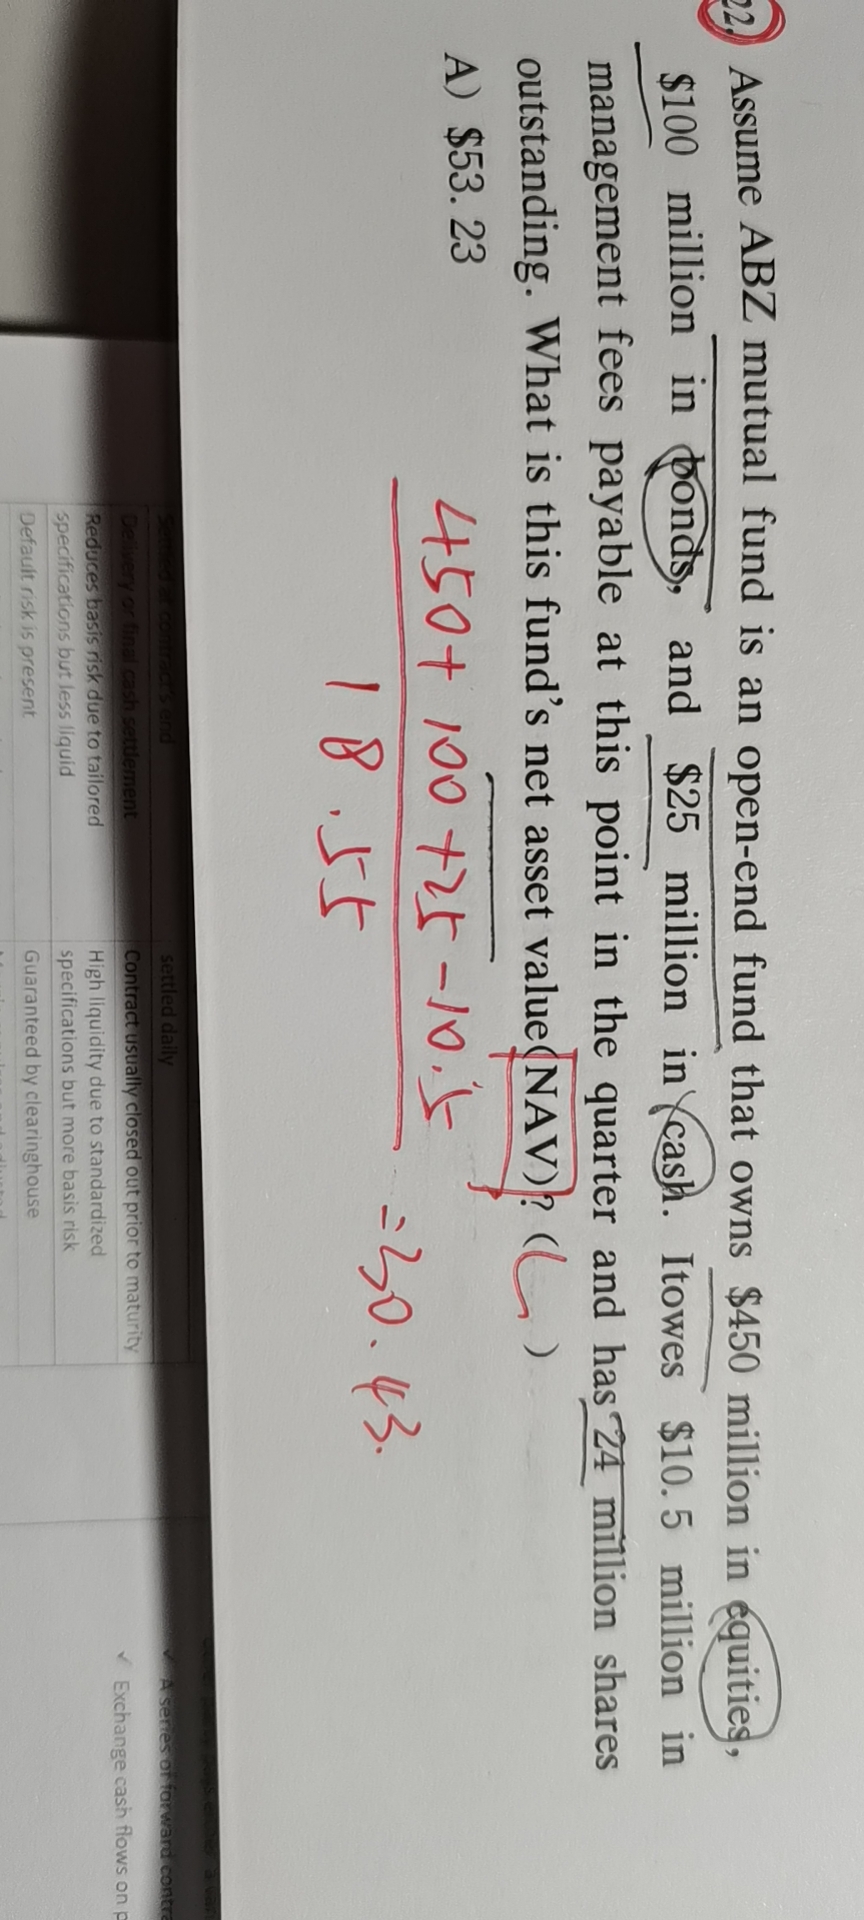 22. Assume ABZ mutual fund is an open-end fund that owns $450 million in equities,
$100 million in bonds, and $25 million in cash. Itowes $10.5 million in
management fees payable at this point in the quarter and has 24 million shares
outstanding. What is this fund's net asset value(NAV)? ( )
A) $53.23
450+100+25-10.5
18.55
=30.43.
settled at contract's end
settled daily
Delivery or final cash settlement
Contract usually closed out prior to maturity
Reduces basis risk due to tailored
specifications but less liquid
High liquidity due to standardized
specifications but more basis risk
Default risk is present
Guaranteed by clearinghouse
✓ A series of forward contra
✓ Exchange cash flows on p